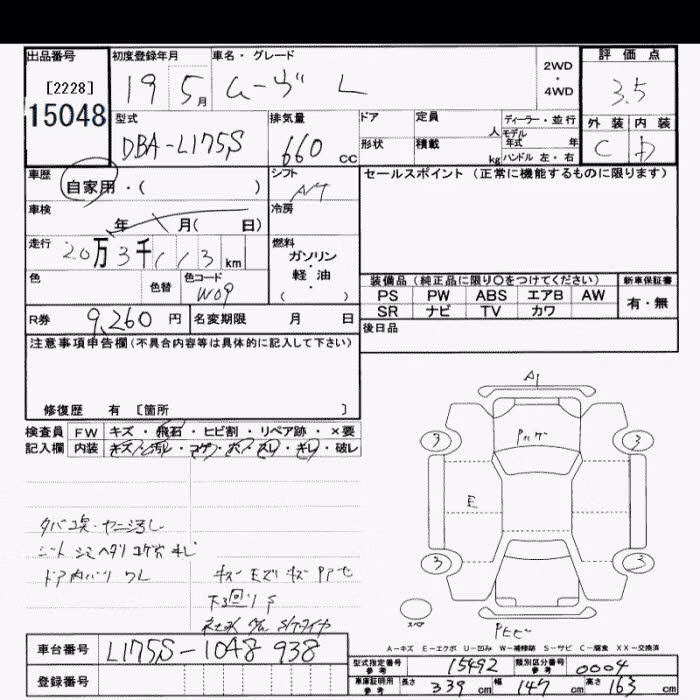 出品番号 初度登録年月 車名・グレード 評価点
[2228] 19 5月 ムーヴ L 2WD・4WD 3.5
15048
型式 排気量 ドア 定員 人 ディーラー・並行 外装 内装
DBA-L175S 660 cc 形状 積載 kg モデル年式 年 ハンドル 左・右 C D
車歴 シフト セールスポイント (正常に機能するものに限ります)
自家用・( ) A/T
車検 年 月( 日) 冷房
走行 20万3千113 km 燃料
ガソリン・軽油 ( )
色 色替 色コード W09
装備品 (純正品に限り〇をつけてください) 新車保証書
PS PW ABS エアB AW 有・無
SR ナビ TV カワ
R券 9,260 円 名変期限 月 日 後日品
注意事項申告欄(不具合内容等は具体的に記入して下さい)
修復歴 有 〔箇所 〕
検査員 FW キズ・飛石・ヒビ割・リペア跡・×要
記入欄 内装 キズ・汚レ・コゲ・穴・スレ・キレ・破レ
A1
3 3
E
3 3
スペア
タバコ臭・ヤニ汚レ
シート シミ ヘタリ コゲ穴
ドア内バリ ワレ
下回り サ
A-キズ E-エクボ U-凹み W-補修跡 S-サビ C-腐食 XX-交換済
車台番号 L175S-1048938
登録番号
型式指定番号 参考 15492 類別区分番号 参考 0004
車庫証明用 参考 長さ 339 cm 幅 147 cm 高さ 163 cm